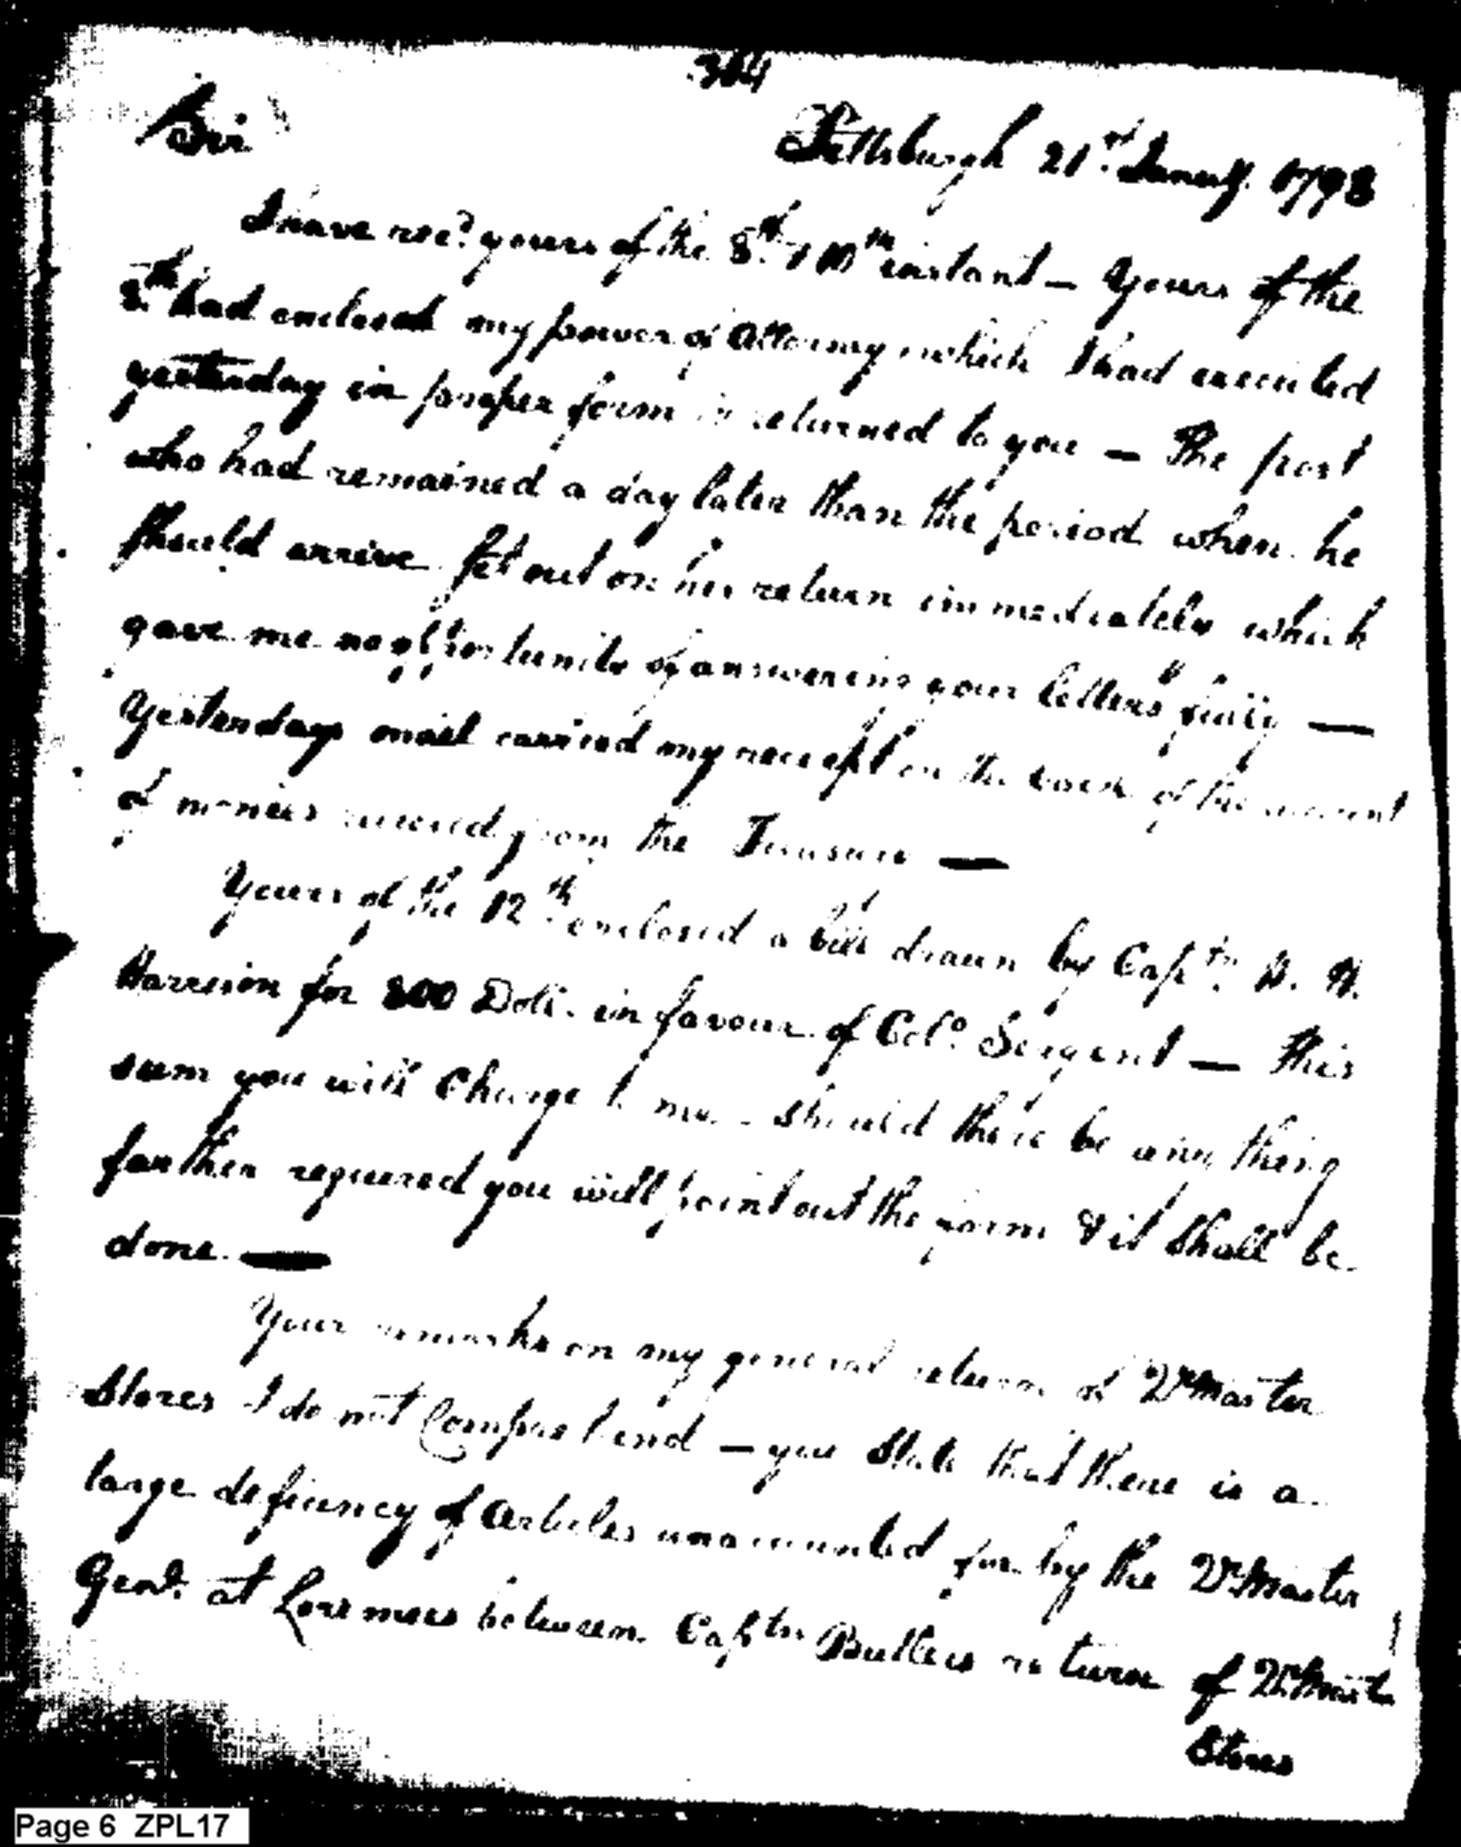 304
Sir
Pittsburgh 21st. Januy. 1793
I have recd. yours of the 8th. & 10th instant — Yours of the
8th. had enclosed my power of Attorney which I had executed
yesterday in proper form is returned to you — The post
who had remained a day later than the period when he
should arrive set out on his return immediately which
gave me no opportunity of answering your letters fully —
Yesterdays mail carried my receipt on the back of the account
of monies received from the Treasury —
Yours of the 12th. enclosed a bill drawn by Captn. H.
Harrison for 200 Doll. in favour of Colo. Sergent — This
sum you will Charge to me - should there be any thing
farther required you will point out the form & it shall be
done. —
Your remarks on my general return of Qr Master
Stores I do not Comprehend — you State that there is a
large defiency of Articles unaccounted for by the Qr Master
Genl. at between Captn Butlers return of Qr Master
Stores
Page 6 ZPL17